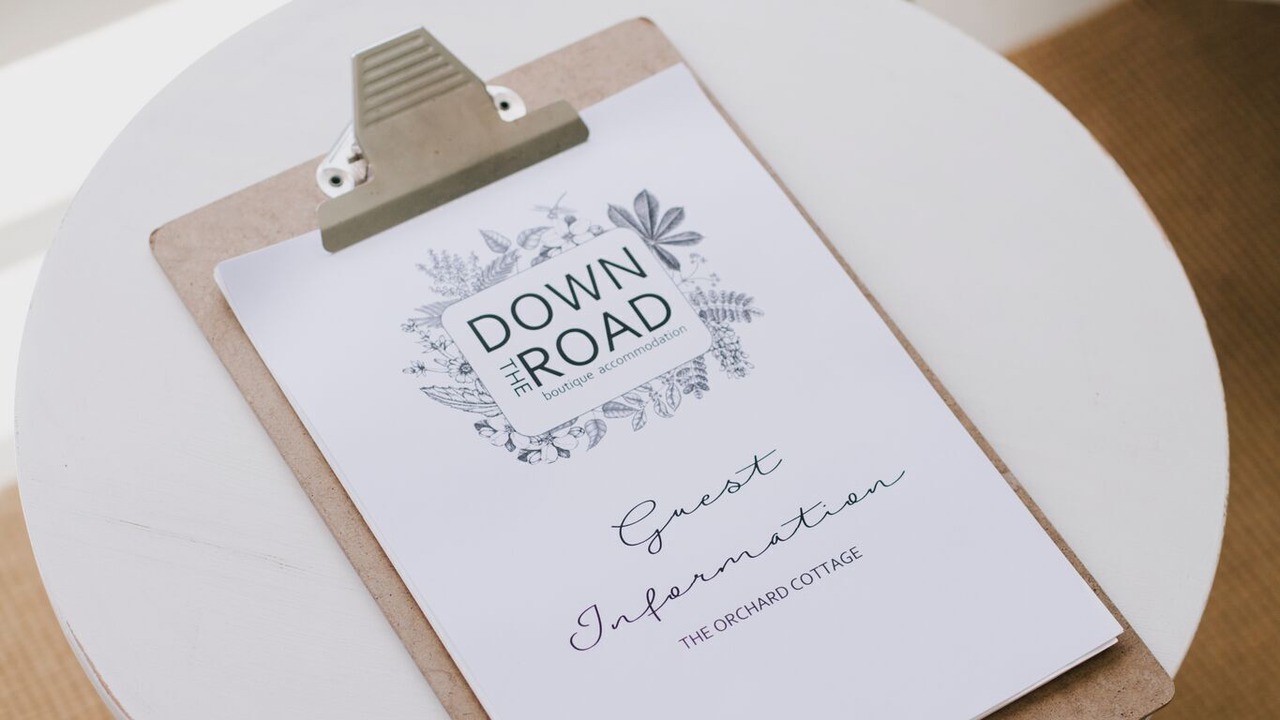 DOWN
THE ROAD
boutique accommodation
Guest
Information
THE ORCHARD COTTAGE